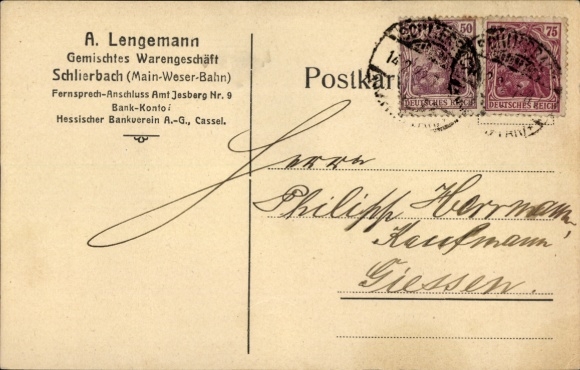 A. Lengemann
Gemischtes Warengeschäft
Schlierbach (Main-Weser-Bahn)
Fernsprech-Anschluss Amt Jesberg Nr. 9
Bank-Konto:
Hessischer Bankverein A.-G., Cassel.
Postkar
50
75
DEUTSCHES REICH
DEUTSCHES REICH
Herrn
Philipp Herrmann,
Kaufmann
Giessen.